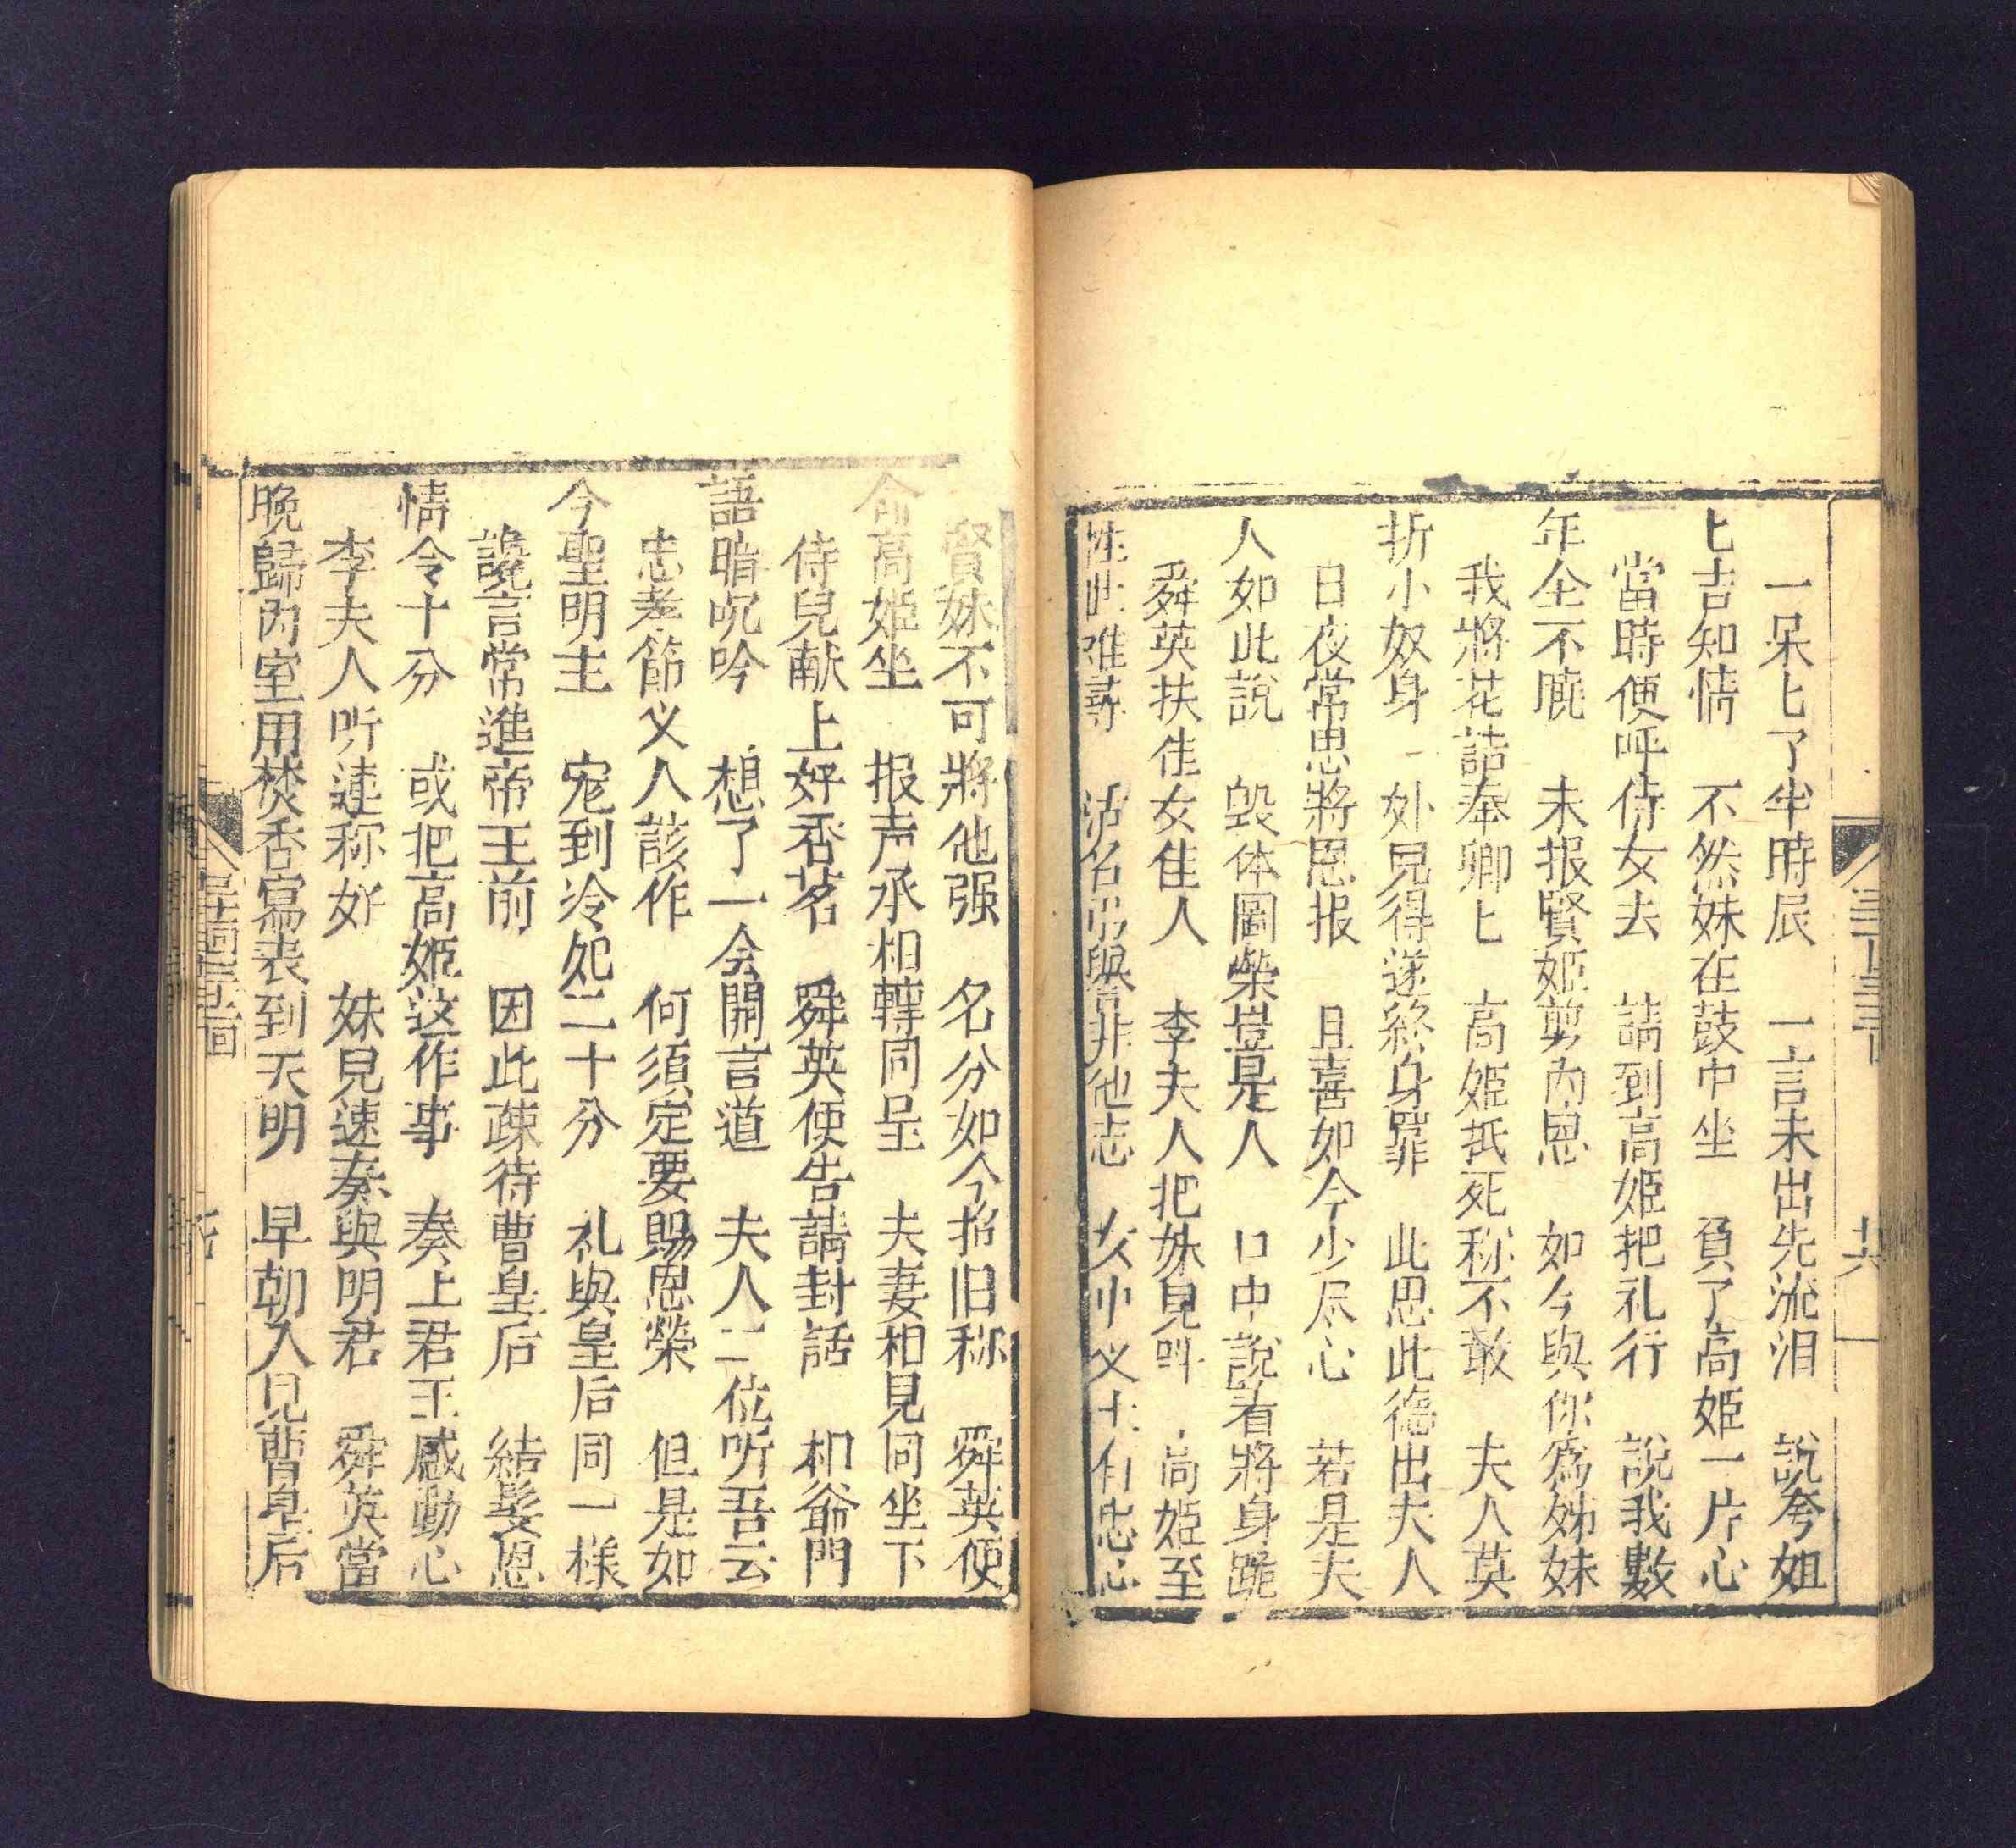 一呆匕了半時辰　一言未出先流泪　說夸姐
匕吉知情　不然妹在鼓中坐　負了高姬一片心
當時便呼侍女去　請到高姬把礼行　說我數
年全不曉　未报賢姬剪內恩　如今與你為姊妹
我將花誥奉卿匕　高姬抵死称不敢　夫人莫
折小奴身　外見得遂終身罪　此恩此德出夫人
日夜常思將恩报　且喜如今少尽心　若是夫
人如此說　毀体圖榮豈是人　口中說着將身跪
舜英扶住女佳人　李夫人把妹見叫　高姬至
性世难尋　沽名吊譽非他志　女中义士有忠心
賢妹不可將他强　名分如今招旧称　舜英便
命高姬坐　报声承相轉同呈　夫妻相見同坐下
侍兒献上好香茗　舜英便告請封話　相爺門
語暗沉吟　想了一会開言道　夫人二位听吾云
忠孝節义人該作　何須定要賜恩榮　但是如
今聖明主　寃到冷处二十分　礼與皇后同一樣
讒言常進帝王前　因此疎待曹皇后　結髮恩
情令十分　或把高姬这作事　奏上君王感動心
李夫人听連称好　妹見速奏與明君　舜英當
晚歸內室　用焚香寫表到天明　早朝入見曹皇后